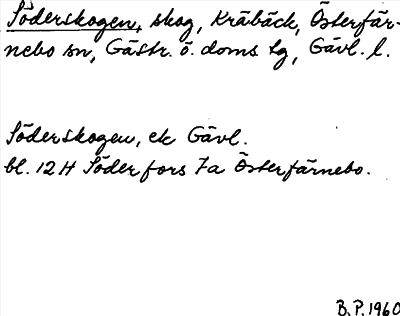 Söderskogen, skog, Kräbäck, Österfär-
nebo sn, Gästr. ö. doms. lg, Gävl. l.
Söderskogen, ek Gävl.
bl. 12 H Söderfors 7a Österfärnebo.
B.P. 1960